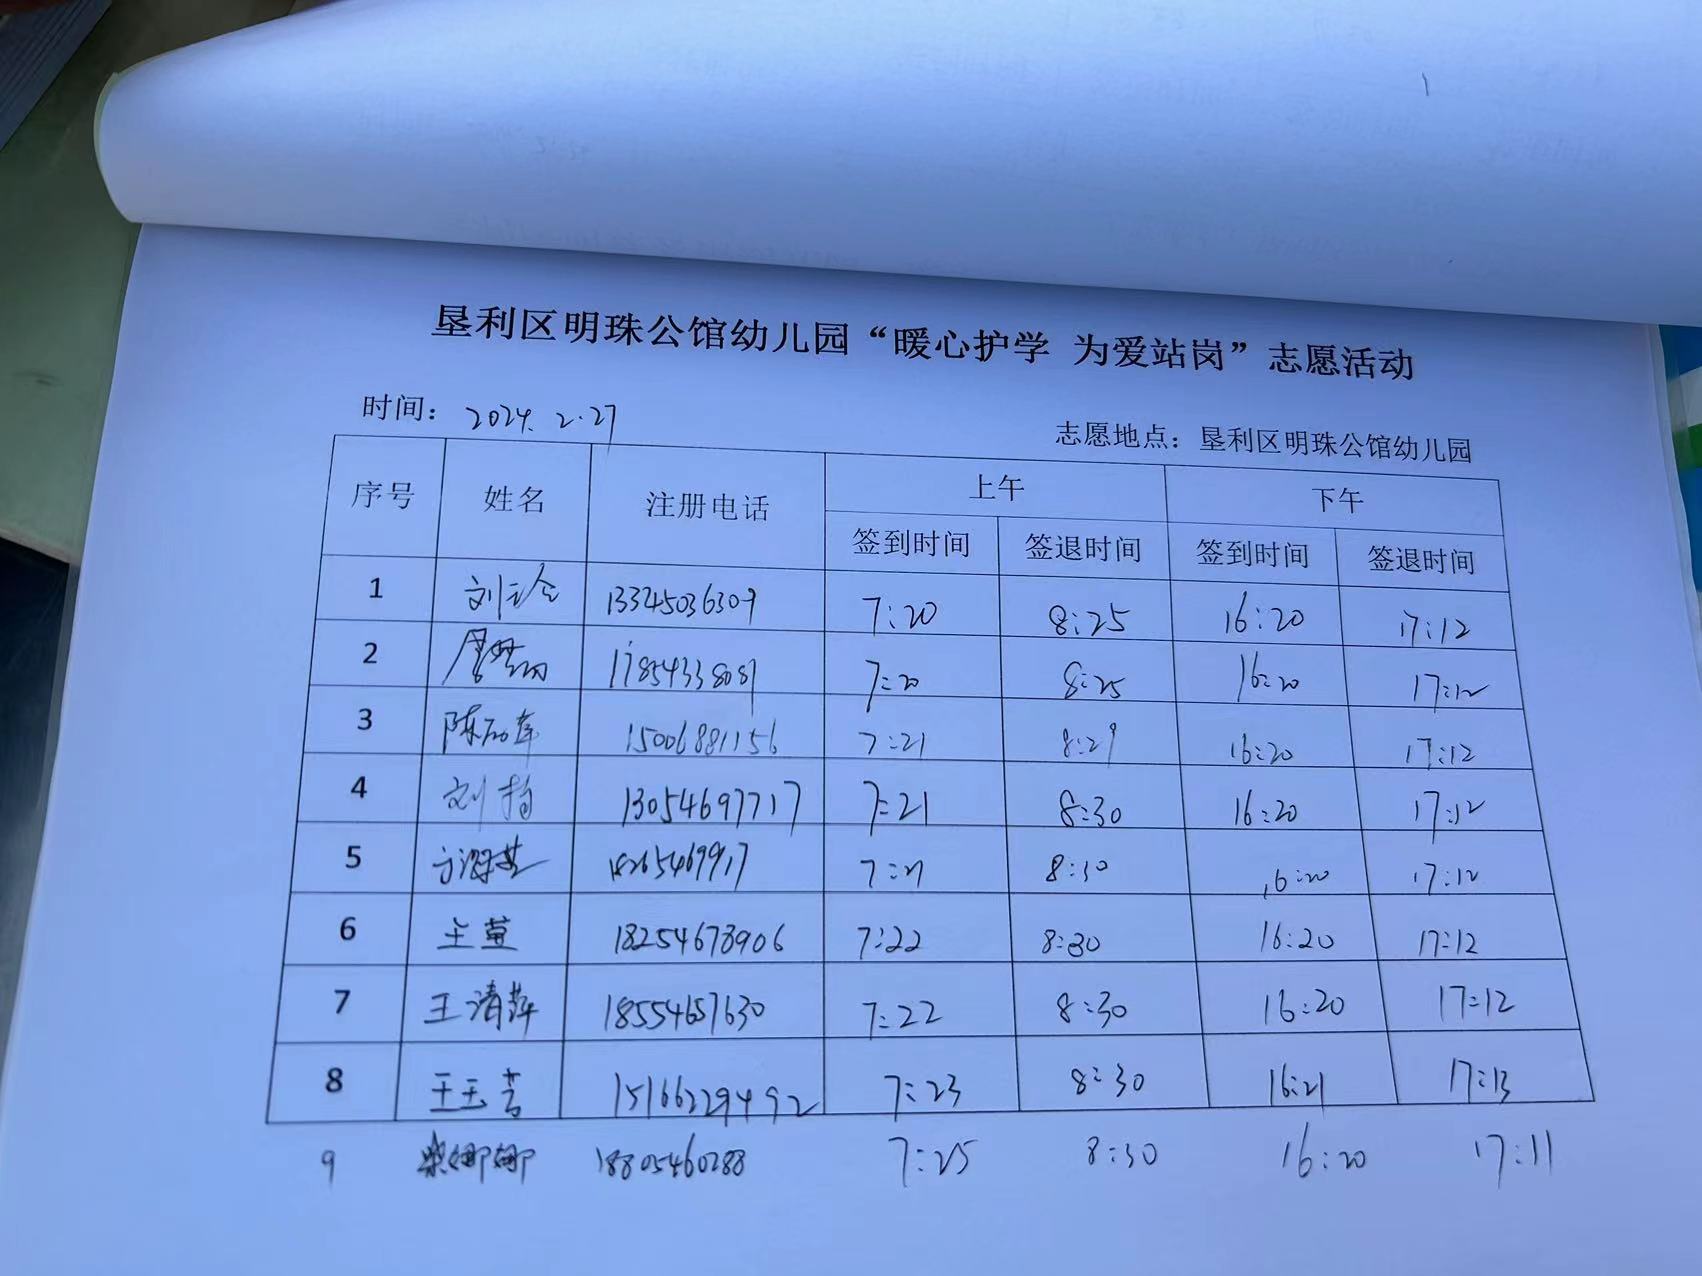 垦利区明珠公馆幼儿园“暖心护学 为爱站岗”志愿活动
时间： 2024. 2.27 志愿地点：垦利区明珠公馆幼儿园
序号 姓名 注册电话 上午 下午
签到时间 签退时间 签到时间 签退时间
1 刘 13345036309 7:20 8:25 16:20 17:12
2 17854338081 7:20 8:25 16:20 17:12
3 陈 15006881156 7:21 8:29 16:20 17:12
4 刘 13054697717 7:21 8:30 16:20 17:12
5 18265469917 7:21 8:30 16:20 17:12
6 王萱 18254673906 7:22 8:30 16:20 17:12
7 王清萍 18554657630 7:22 8:30 16:20 17:12
8 王玉芳 15166229492 7:23 8:30 16:21 17:13
9 娜娜 18805460288 7:25 8:30 16:20 17:11